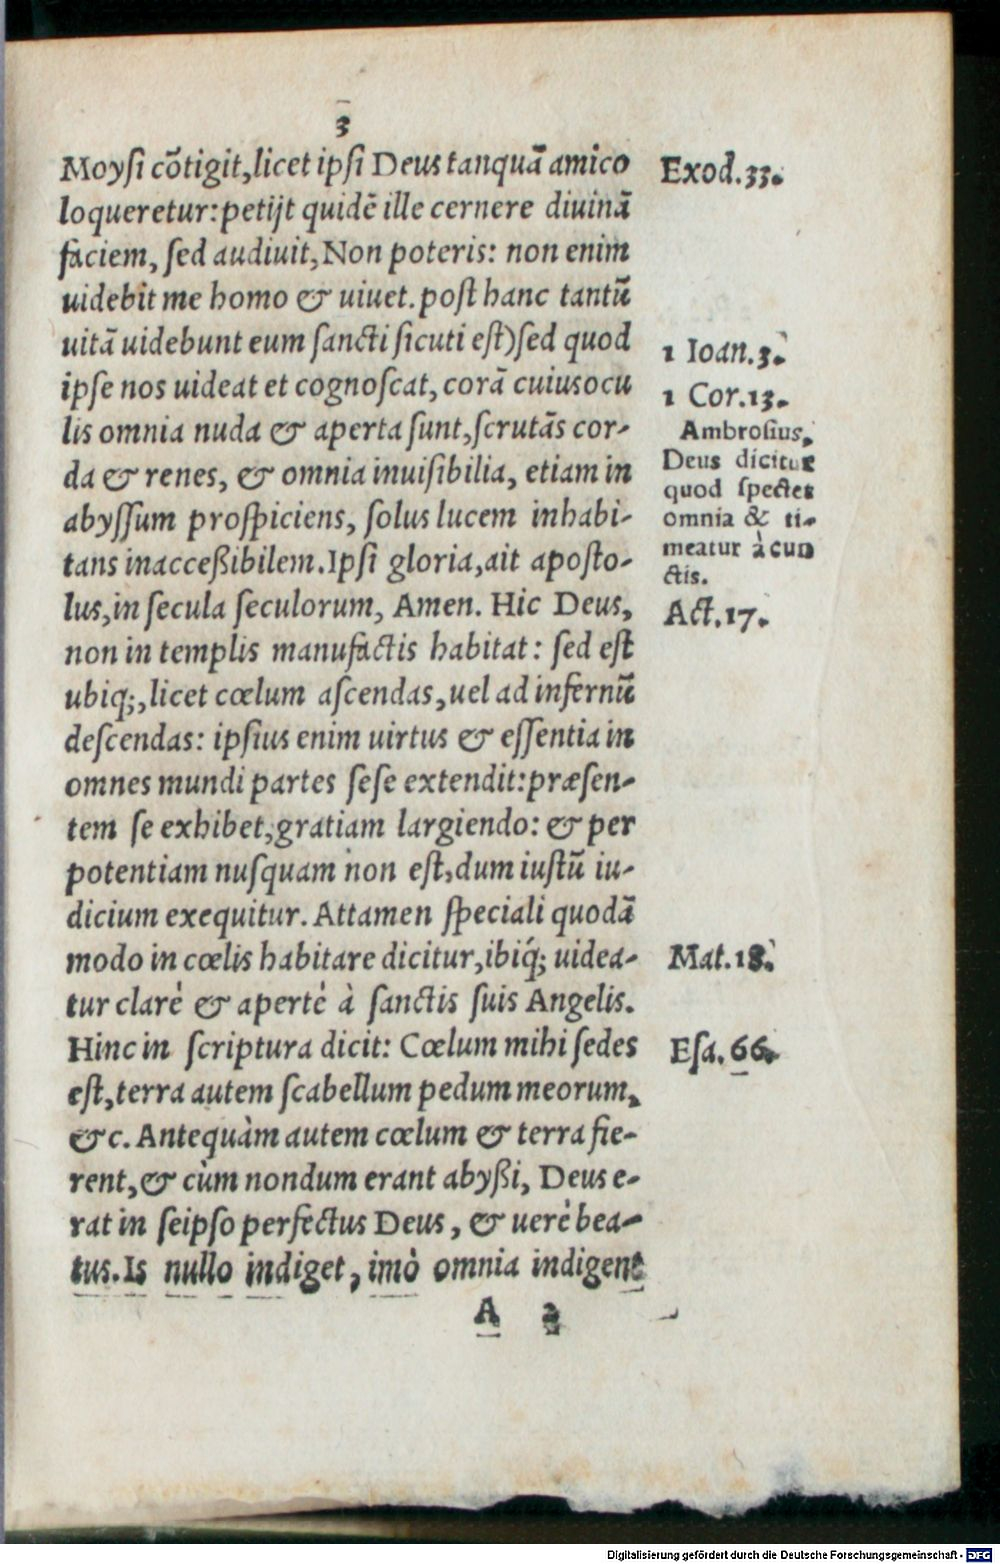 3
Moyſi cōtigit, licet ipſi Deus tanquā amico
loqueretur: petijt quidē ille cernere diuinā
faciem, ſed audiuit, Non poteris: non enim
uidebit me homo & uiuet. poſt hanc tantū
uitā uidebunt eum ſancti ſicuti eſt) ſed quod
ipſe nos uideat et cognoſcat, corā cuius ocu
lis omnia nuda & aperta ſunt, ſcrutās cor-
da & renes, & omnia inuiſibilia, etiam in
abyſſum proſpiciens, ſolus lucem inhabi-
tans inacceßibilem. Ipſi gloria, ait apoſto-
lus, in ſecula ſeculorum, Amen. Hic Deus,
non in templis manufactis habitat: ſed eſt
ubiq;, licet cœlum aſcendas, uel ad infernū
deſcendas: ipſius enim uirtus & eſſentia in
omnes mundi partes ſeſe extendit: præſen-
tem ſe exhibet, gratiam largiendo: & per
potentiam nuſquam non eſt, dum iuſtū iu-
dicium exequitur. Attamen ſpeciali quodā
modo in cœlis habitare dicitur, ibiq́; uidea-
tur claré & aperté à ſanctis ſuis Angelis.
Hinc in ſcriptura dicit: Cœlum mihi ſedes
eſt, terra autem ſcabellum pedum meorum,
&c. Antequàm autem cœlum & terra fie-
rent, & cùm nondum erant abyßi, Deus e-
rat in ſeipſo perfectus Deus, & uerè bea-
tus. Is nullo indiget, imò omnia indigent
A 2
Exod. 33.
1 Ioan. 3.
1 Cor. 13.
Ambroſius,
Deus dicitur
quod ſpectet
omnia & ti-
meatur à cun
ctis.
Act. 17.
Mat. 18.
Eſa. 66.
Digitalisierung gefördert durch die Deutsche Forschungsgemeinschaft - DFG